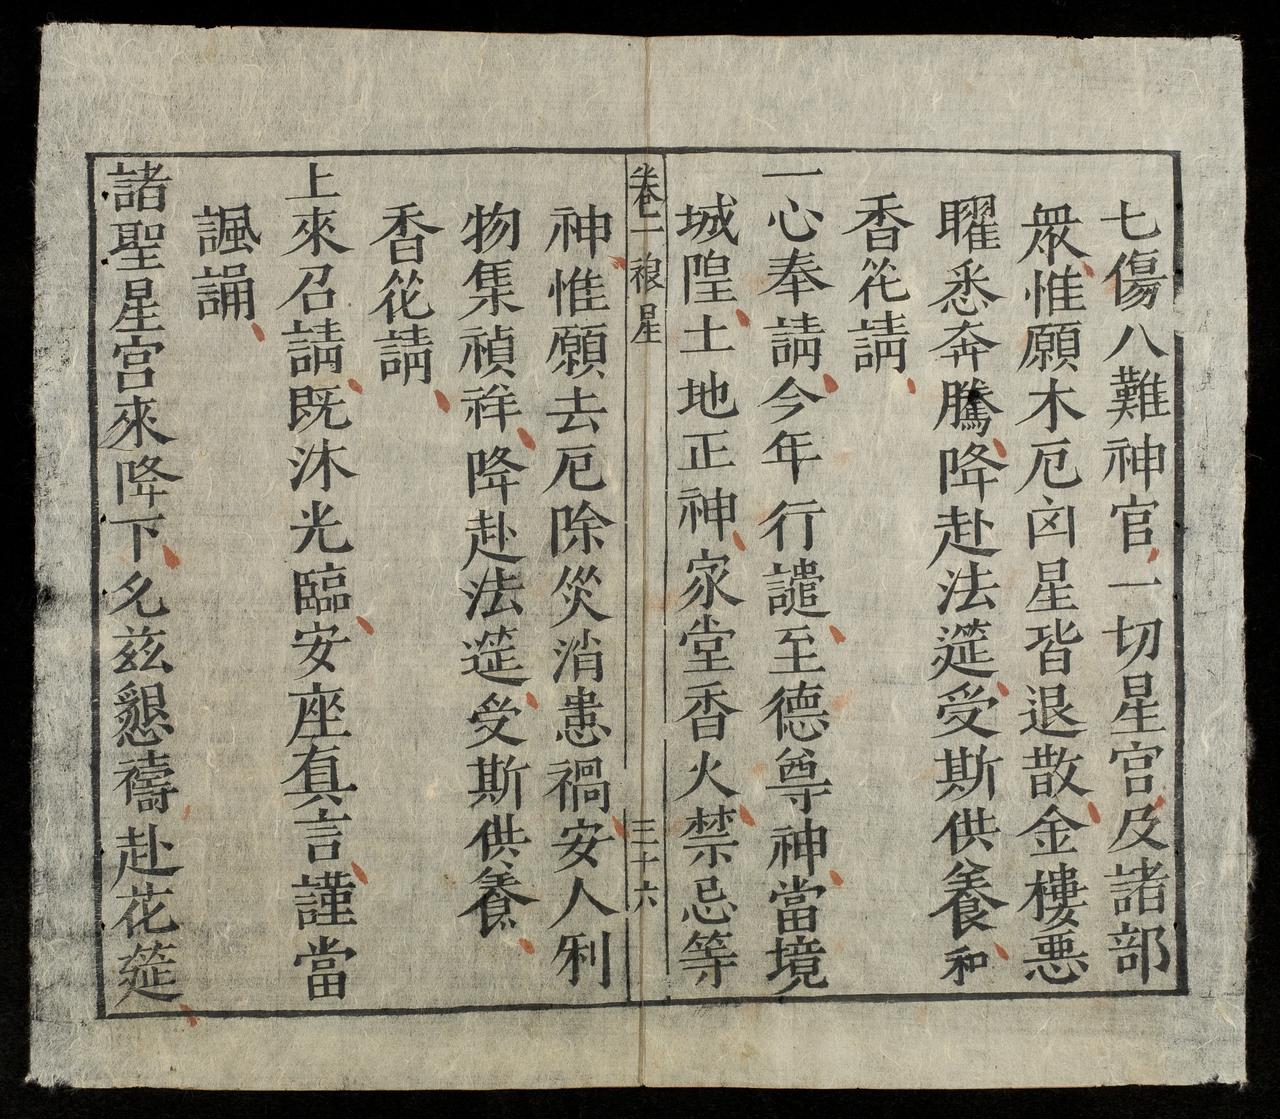 七傷八難神官一切星宮及諸部
衆惟願木厄凶星皆退散金樓悪
曜悉奔騰降赴法莚受斯供養和
香花請
一心奉請今年行譴至德尊神當境
城隍土地正神家堂香火禁忌等
卷二 禳星 三十六
神惟願去厄除災消患禍安人利
物集禎祥降赴法莚受斯供養
香花請
上來召請既沐光臨安座真言謹當
諷誦
諸聖星宮來降下允兹懇禱赴花莚